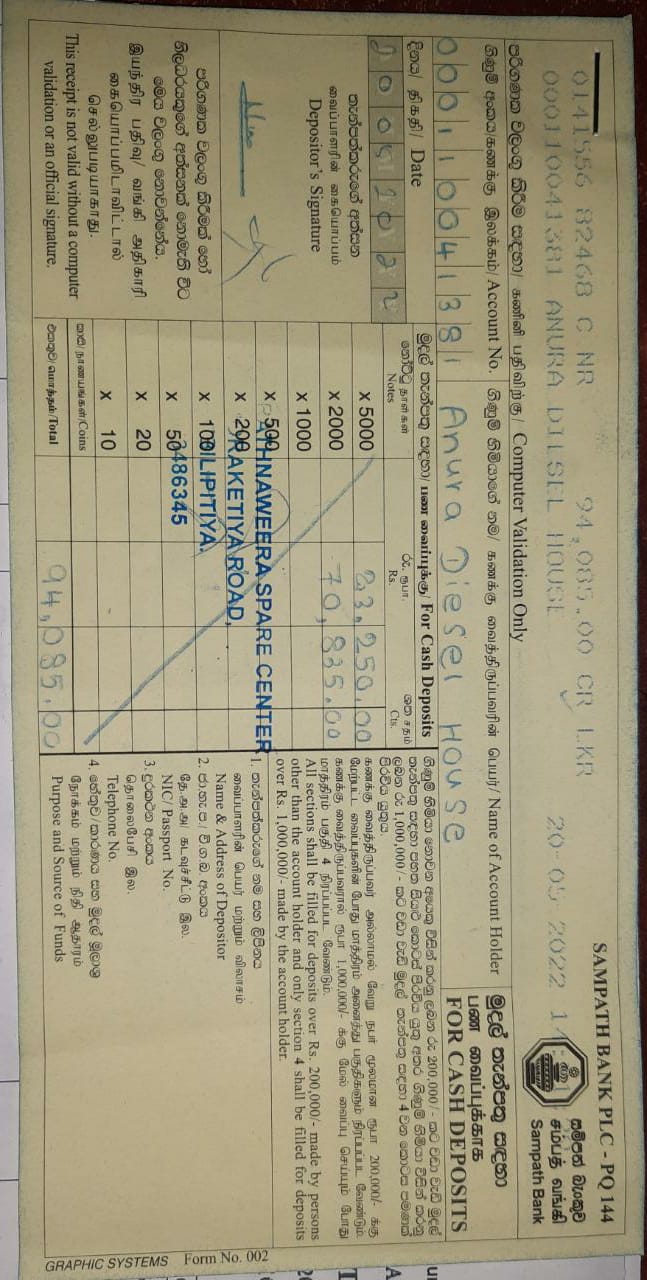 SAMPATH BANK PLC - PQ 144
0141556 82468 C NR 94,085.00 CR LKR 20-05-2022 14:
000110041381 ANURA DIESEL HOUSE
සම්පත් බැංකුව
சம்பத் வங்கி
Sampath Bank
පරිගණක වලංගු කිරීම සඳහා/ கணினி பதிவிற்கு/ Computer Validation Only
මුදල් තැන්පතු සඳහා
பண வைப்புக்காக
FOR CASH DEPOSITS
ගිණුම් අංකය/கணக்கு இலக்கம்/ Account No.
ගිණුම් හිමියාගේ නම/ கணக்கு வைத்திருப்பவரின் பெயர்/ Name of Account Holder
000110041381 Anura Diesel House
දිනය/ திகதி/ Date
20052022
මුදල් තැන්පතු සඳහා/ பண வைப்புக்கு/ For Cash Deposits
නෝට්ටු/தாள்கள்
Notes
රු. ரூபா.
Rs.
ශත சதம்
Cts.
X 5000 23,250.00
X 2000 70,835.00
X 1000
X 500
X 200
X 100
X 50
X 20
X 10
කාසි/நாணயங்கள்/Coins
එකතුව/மொத்தம்/Total 94,085.00
RATHNAWEERA SPARE CENTER
RAKETIYA ROAD,
DILIPITIYA.
3486345
තැන්පත්කරුගේ අත්සන
வைப்பாளரின் கையொப்பம்
Depositor's Signature
පරිගණක වලංගු කිරීමක් හෝ
නිලධරයකුගේ අත්සනක් නොමැති විට
මෙය වලංගු නොවන්නේය.
இயந்திர பதிவு/ வங்கி அதிகாரி
கையொப்பமிடாவிட்டால்
செல்லுபடியாகாது.
This receipt is not valid without a computer
validation or an official signature.
ගිණුම් හිමියා නොවන අයෙකු විසින් කරනු ලබන රු 200,000/- කට වඩා වැඩි මුදල්
තැන්පතු සඳහා පහත සියළු කොටස් පිරවිය යුතු අතර ගිණුම් හිමියා විසින් කරනු
ලබන රු 1,000,000/- කට වඩා වැඩි මුදල් තැන්පතු සඳහා 4 වන කොටස පමණක්
පිරවිය යුතුය.
கணக்கு வைத்திருப்பவர் அல்லாமல் வேறு நபர் மூலமான ரூபா 200,000/- க்கு
மேற்பட்ட வைப்புகளின் போது மாத்திரம் அனைத்து பகுதிகளும் நிரப்பப்பட வேண்டும்.
கணக்கு வைத்திருப்பவரால் ரூபா 1,000,000/- க்கு மேல் வைப்பு செய்யும் போது
மாத்திரம் பகுதி 4 நிரப்பப்பட வேண்டும்.
All sections shall be filled for deposits over Rs. 200,000/- made by persons
other than the account holder and only section 4 shall be filled for deposits
over Rs. 1,000,000/- made by the account holder.
1. තැන්පත්කරුගේ නම සහ ලිපිනය
வைப்பாளரின் பெயர் மற்றும் விலாசம்
Name & Address of Depositor
2. ජා.හැ.ප./ වි.ග.බ අංකය
தே.அ.அ/ கடவுச்சீட்டு இல.
NIC/ Passport No.
3. දුරකථන අංකය
தொலைபேசி இல.
Telephone No.
4. හේතුව/කාරණය සහ මුදල් මූලාශ්‍ර
நோக்கம் மற்றும் நிதி ஆதாரம்
Purpose and Source of Funds
GRAPHIC SYSTEMS Form No. 002